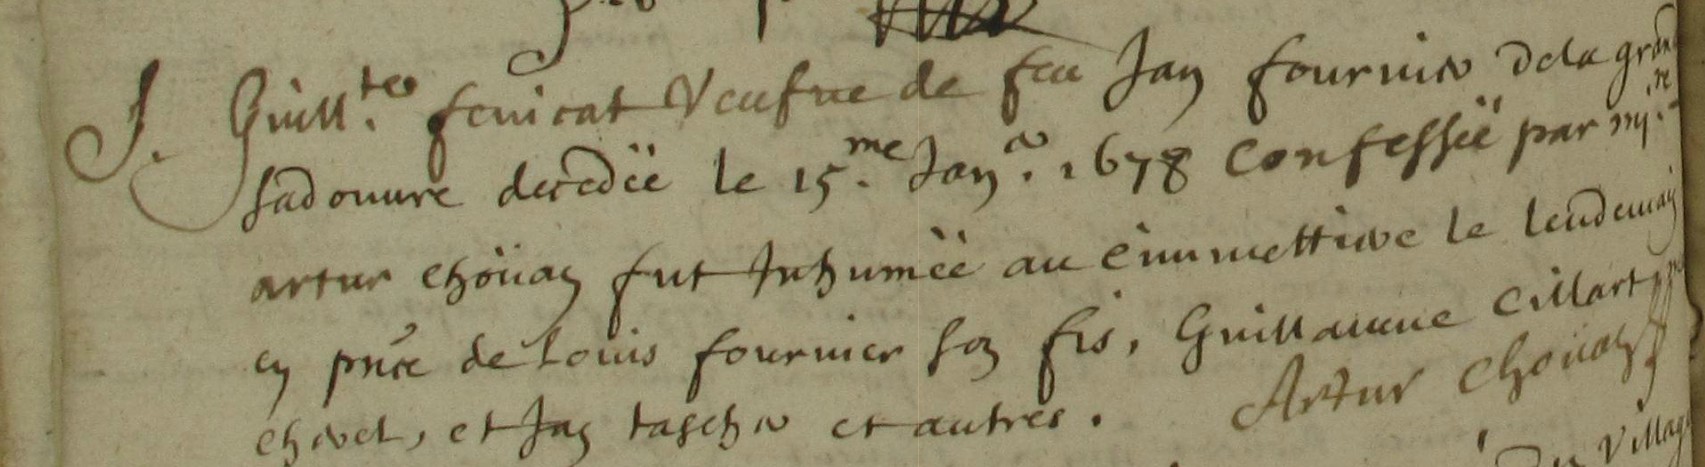 J. Guill.te fenicat Veufve de feu Jan fournier de la gran
sadouvre decedëë le 15.me Jan.r 1678 Confessëë par
artur choüan fut Inhumëë au cimmettiere le lendemain
en pnce de Louis fournier son fis, Guillaume Cillart
et Jan taschr et autres. Artur Choüan
Village